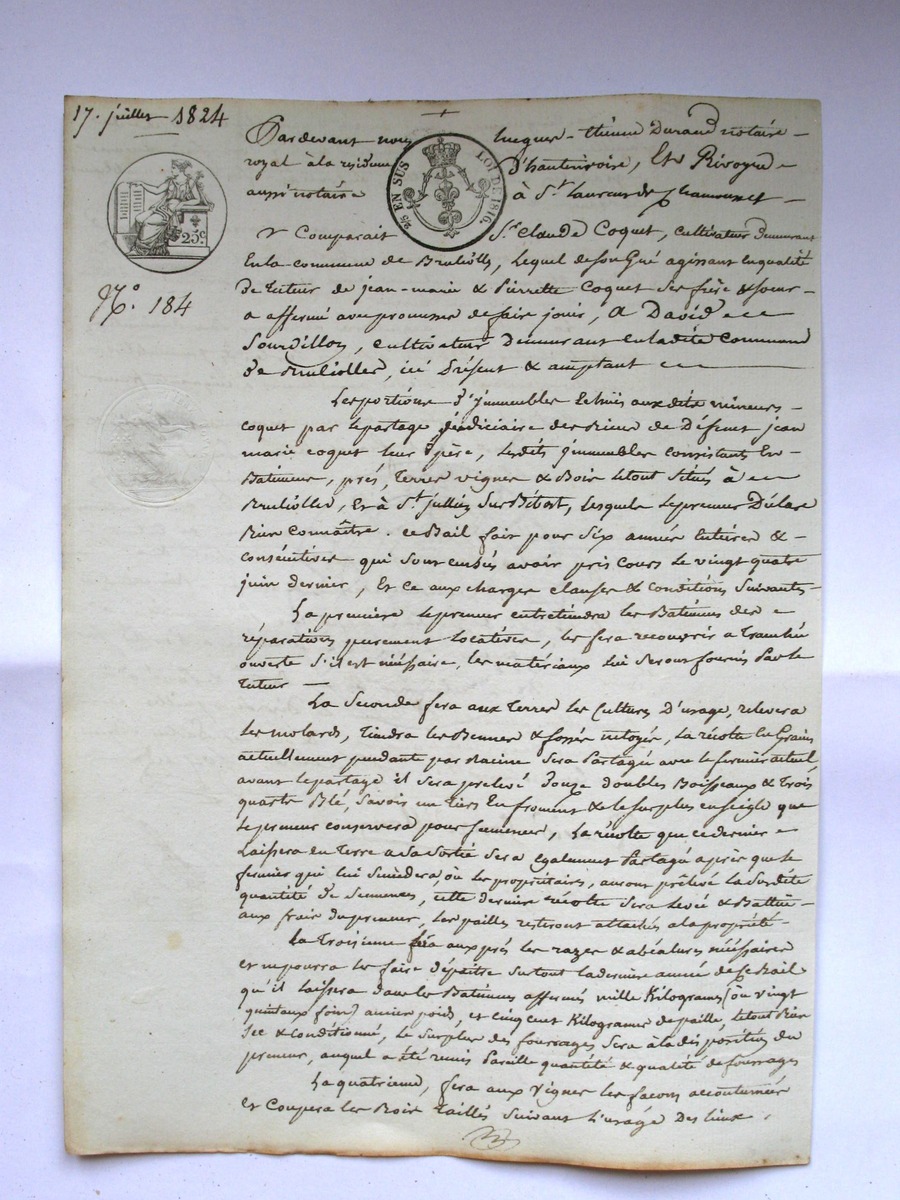 17. juillet 1824
Pardevant nous hugues-etienne Durand notaire
royal à la residence D'hauterivoire, Et Rivoyre
aussi notaire à St Laurent de Chamousset
EN SUS
LOI DE 1816.
25c
No. 184
Comparait Sr. Claude Coquet, cultivateur demeurant
En la commune de Brulioles, Lequel de son Gré agissant en qualité
De tuteur de jean-marie & Pierrette Coquet ses frère & soeur
a affermé avec promesse de faire jouir, a David
Sourdillon, cultivateur Demeurant en ladite Commune
De Brulioller, ici Présent & acceptant
Les portions D'immeubles Echus aux dits mineurs
coquet par le partage judiciaire des Biens de Défunt jean
marie coquet leur père, Lesdits immeubles consistants En
Batiments, prés, Terres vignes & Bois le tout Situés à
Brulioller, Et à St. jullien Sur Bibost, lesquels le preneur Déclare
Bien Connaître. ce Bail fait pour Six années Entières &
consécutives qui sont censés avoir pris Cours le vingt quatre
juin dernier, Et ce aux charges clauses & conditions Suivantes
La première le preneur entretiendra les Batimens des
réparations purement locatives, les fera recouvrir a tranchée
ouverte S'il est nécéssaire, les matériaux lui seront fournis Par le
tuteur
La Seconde fera aux Terres les Cultures D'usage, relevera
les molards, Tiendra les Bennes & fossés nétoyés, La récolte En Grains
actuellement pendant par racine Sera Partagée avec le fermier actuel,
avant le partage il Sera prelevé Douze doubles Boisseaux & Trois
quarts Blé, Savoir un tiers En froment & le Surplus en seigle que
le preneur conservera pour Semences, La récolte que ce dernier
Laissera En Terre a Sa Sortie Sera Egalement Partagée après que le
fermier qui lui Succèdera, ou les propriétaires, auront prélevé la Susdite
quantité De Semences, cette dernière récolte Sera levée & Battue
aux frais du preneur, Les pailles resteront attachés a la propriété
La Troisieme fera aux prés les razes & abéalures nécéssaires
et ne pourra les faire Dépaitre Surtout la dernière année de ce Bail
qu'il laissera dans les Batimens affermés mille Kilogrames (ou vingt
quintaux foin) ancien poids, et cinq cent Kilogrames de paille, le tout Bien
Sec & conditionné, le Surplus des fourrages Sera à la disposition du
preneur, auquel a été remis Pareille quantité & qualité de fourrages
La quatrieme, fera aux Vignes les façons accoutumées
Et Coupera les Bois Taillés Suivant L'usage Des Lieux.